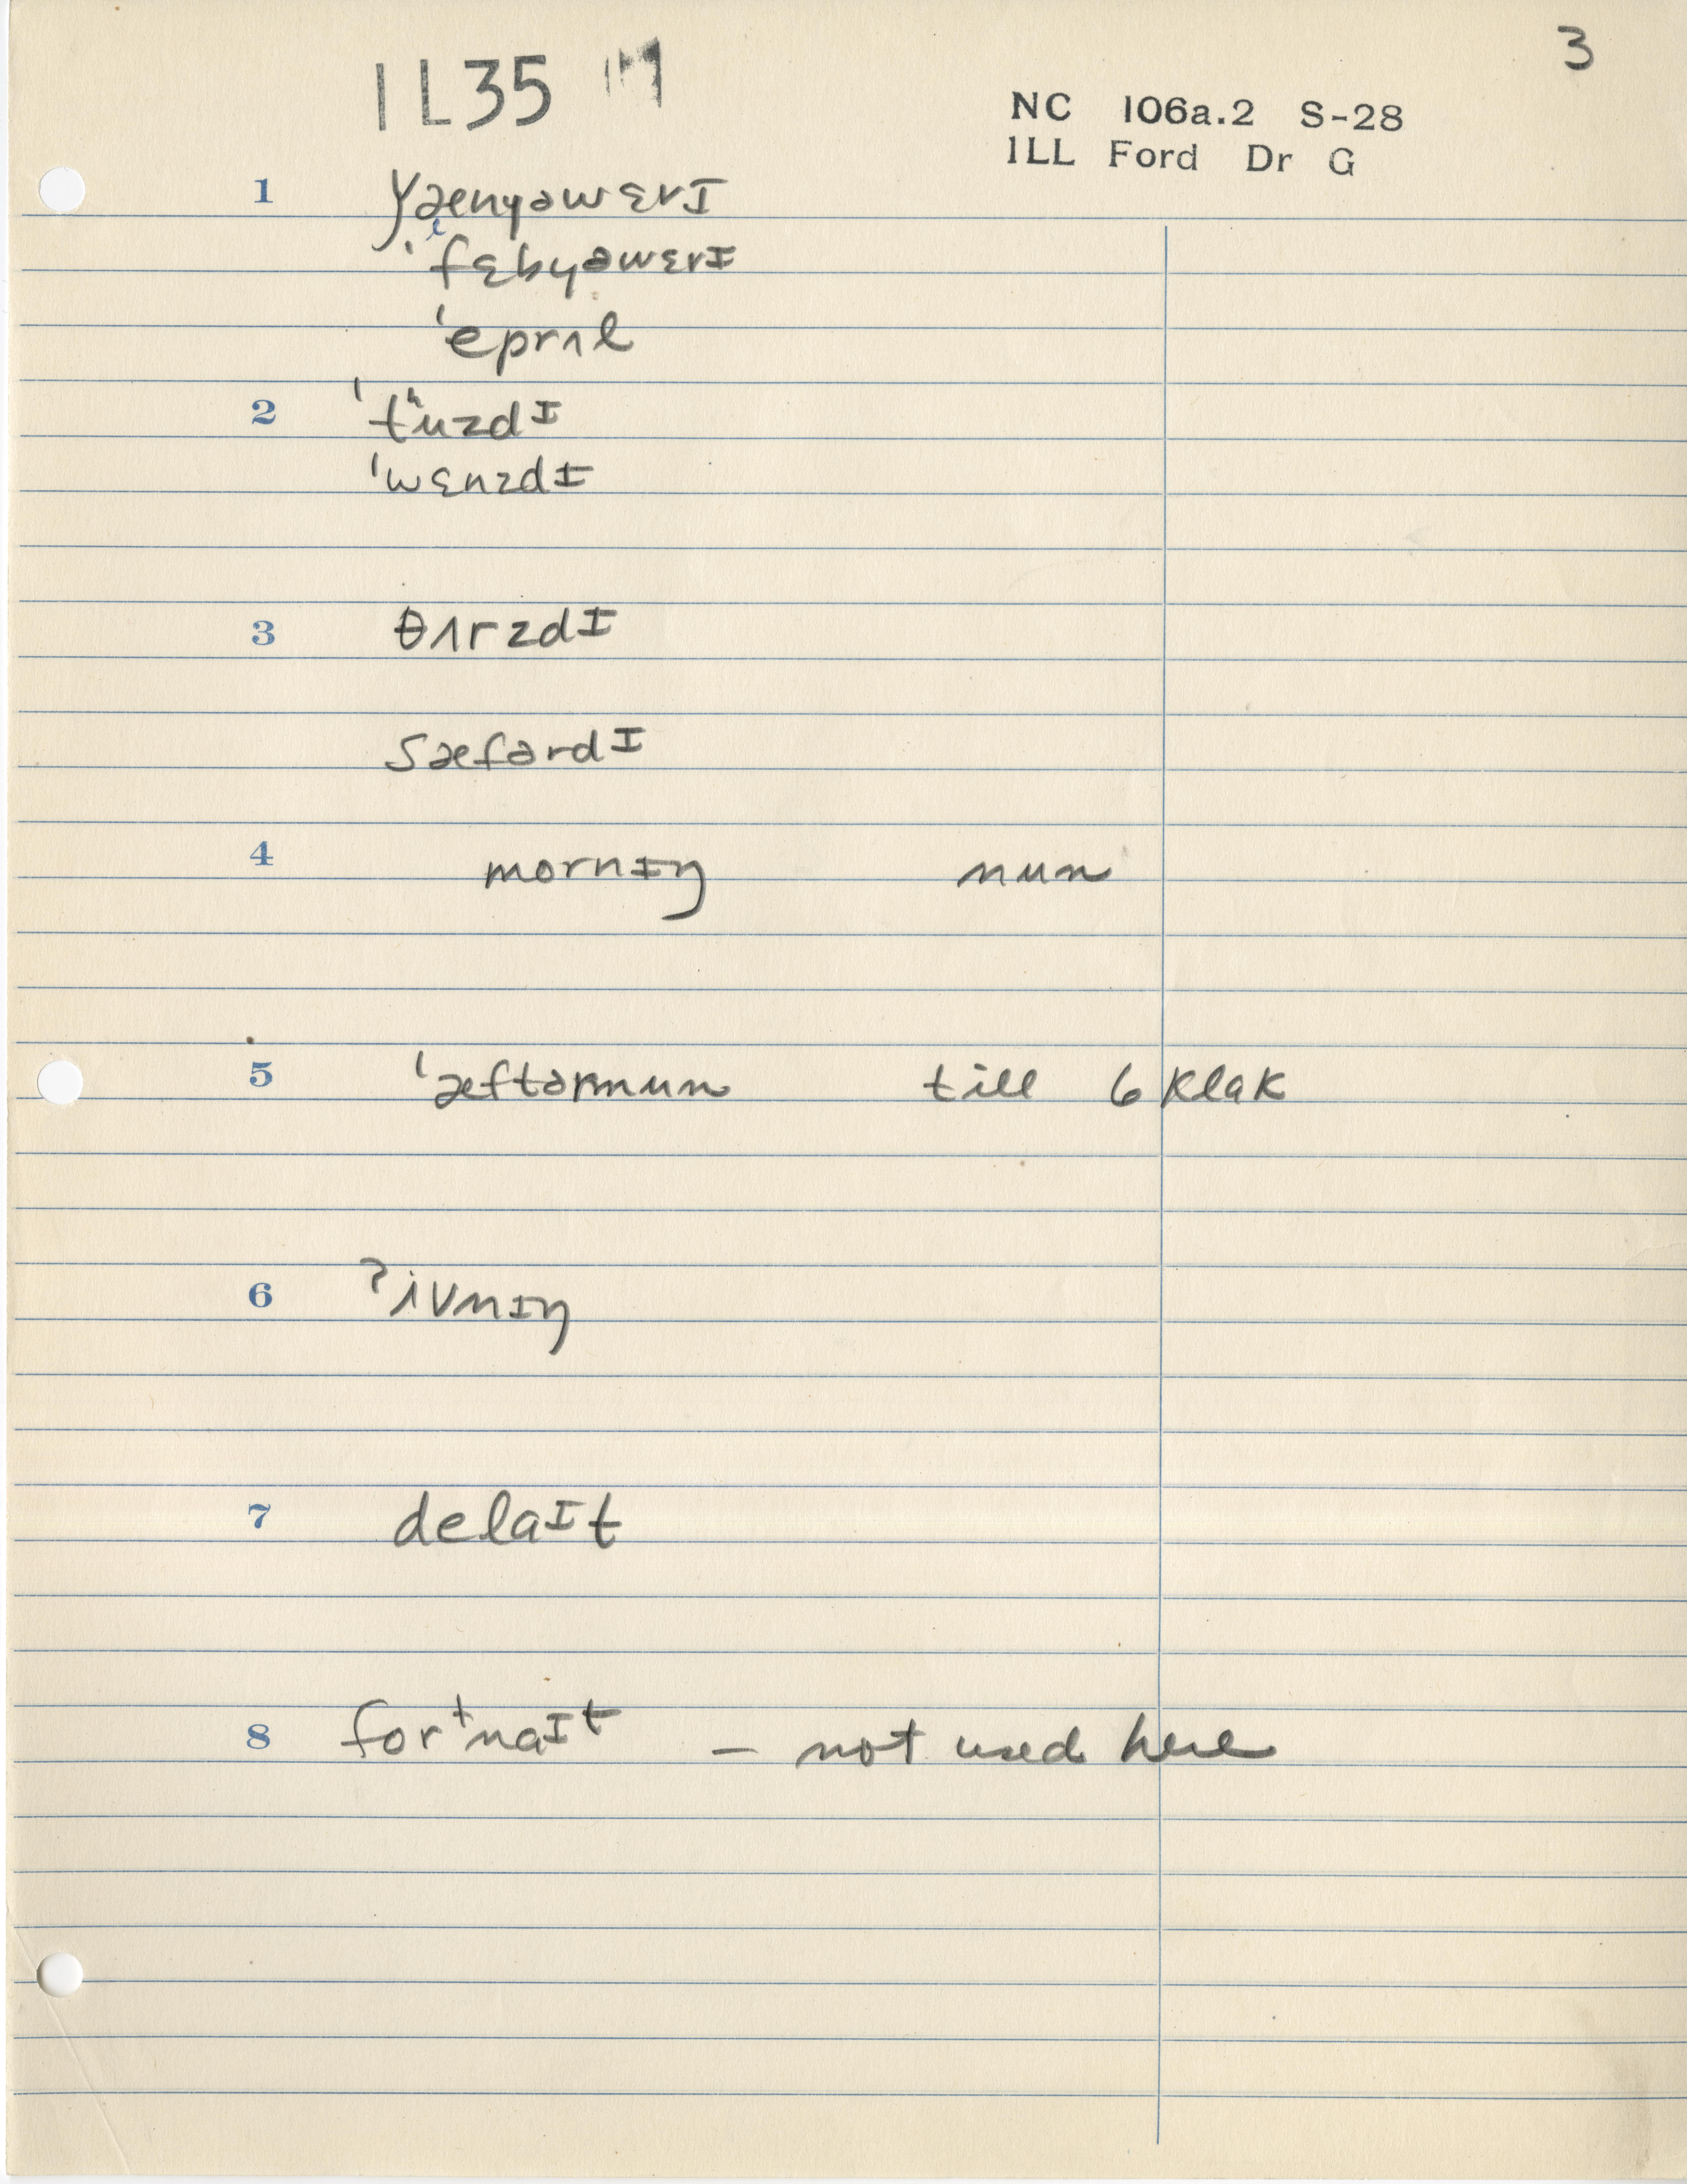 3
IL35
NC 106a.2 S-28
ILL Ford Dr G
1 yænyəwɛrɪ
ˈfɛbyəwɛrɪ
ˈeprɪl
2 ˈtʉzdɪ
ˈwɛnzdɪ
3 θɪrzdɪ
sæfərdɪ
4 mornɪŋ nun
5 ˈæftərnun till 6 klak
6 ʔivnɪŋ
7 delaɪt
8 for⁺naɪt – not used here